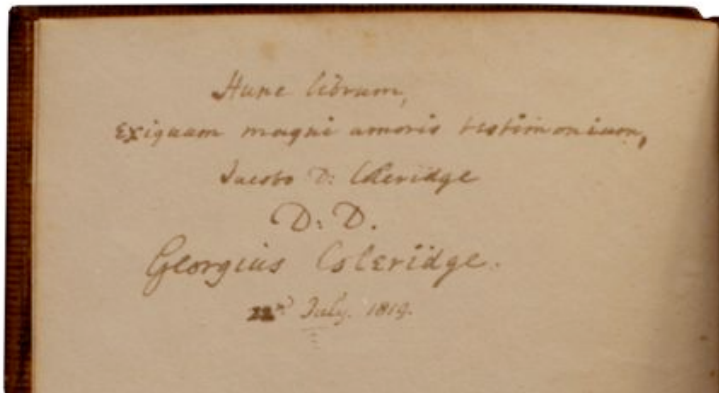 Hunc librum,
Exiguum magni amoris testimonium,
Jacobo D: Coleridge
D. D.
Georgius Coleridge.
22nd July. 1819.